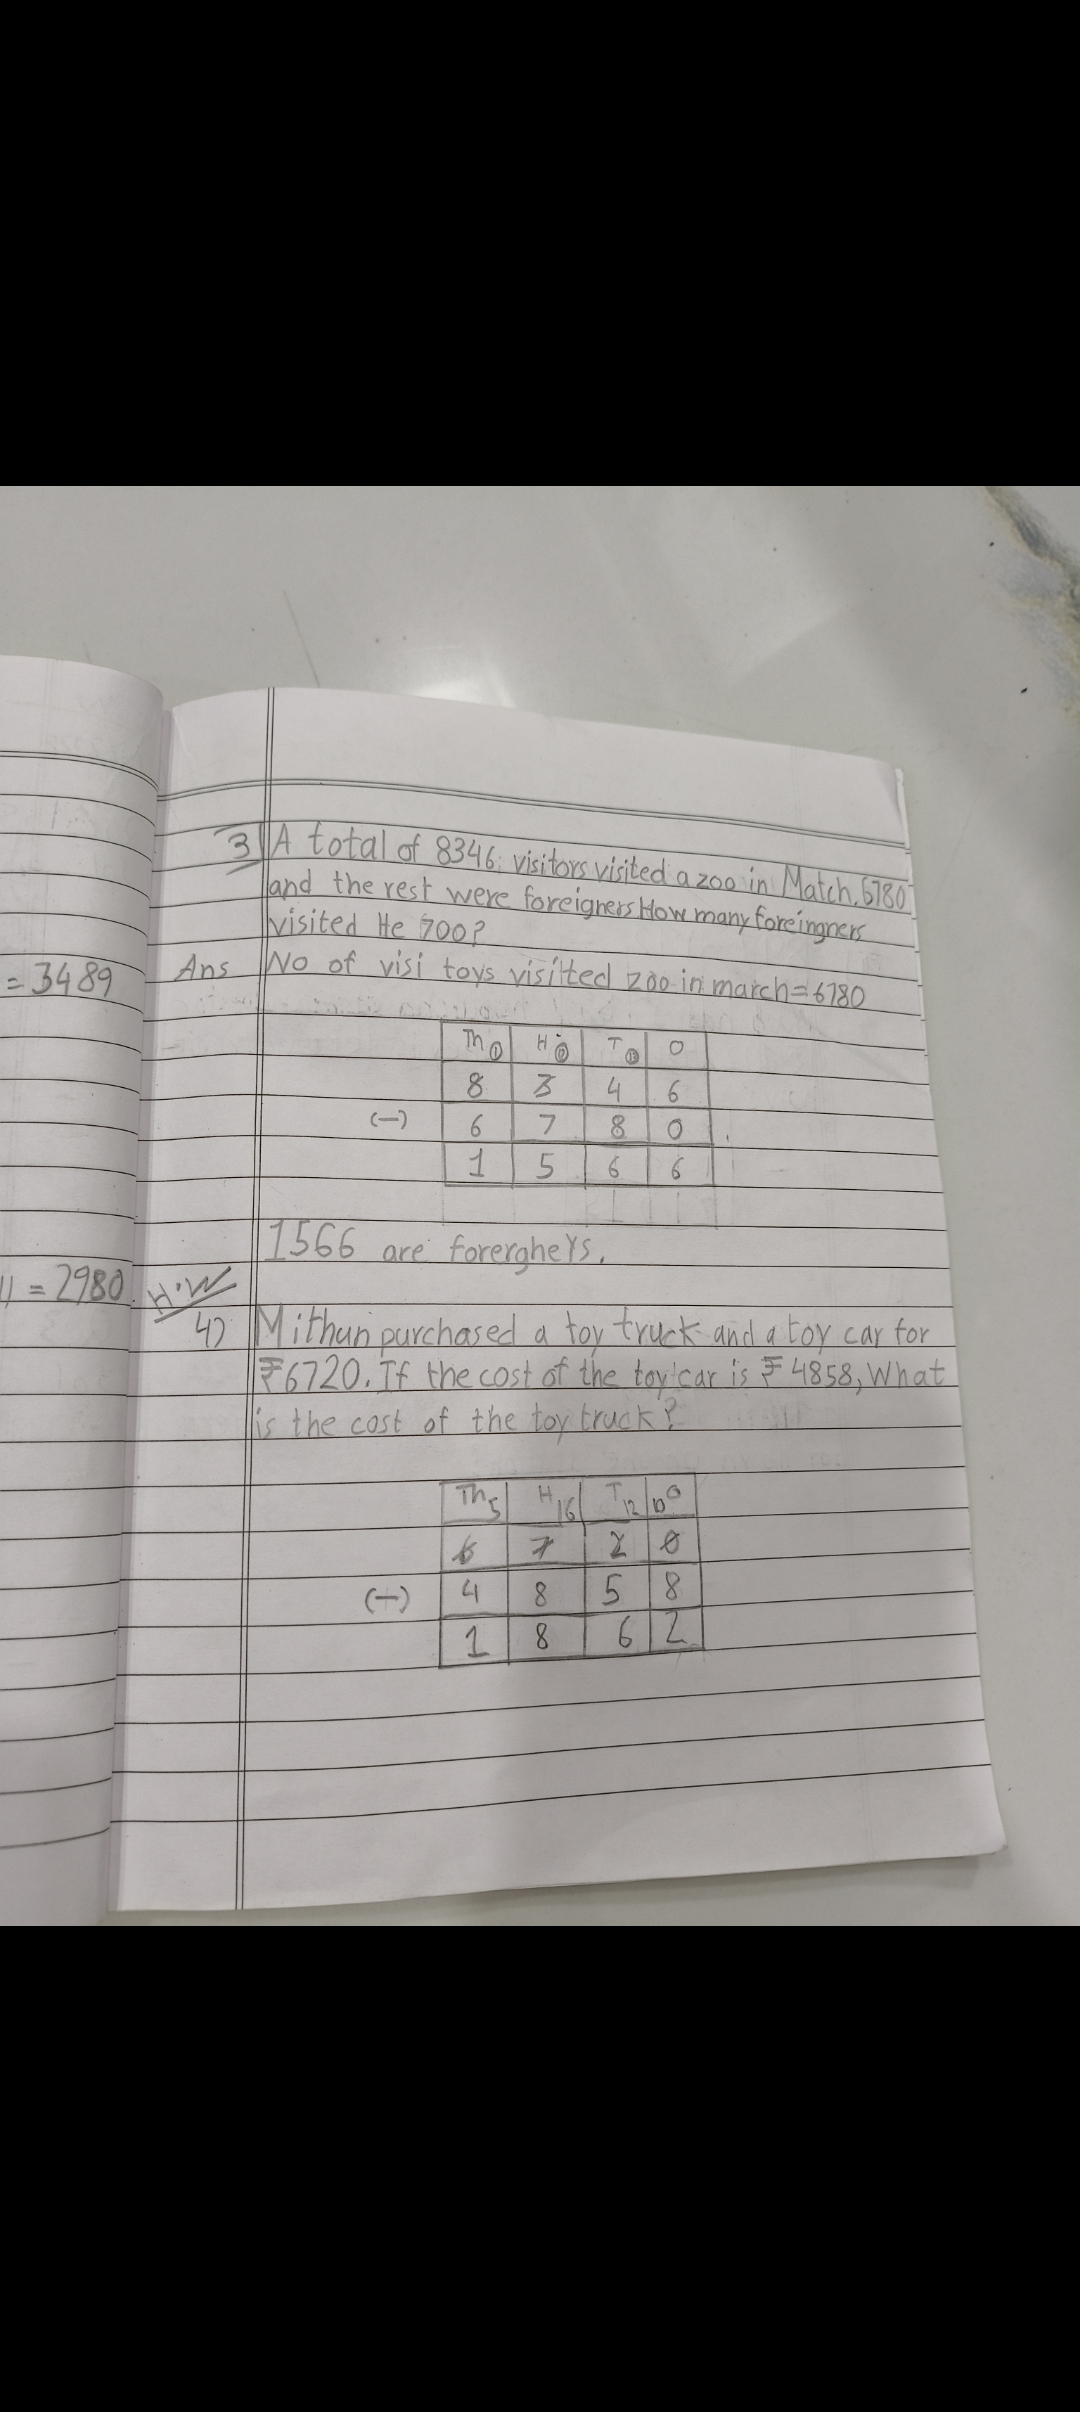 3 A total of 8346 visitors visited a zoo in Match. 6780
and the rest were foreigners How many foreingners
visited He 700?
= 3489
Ans No of visi toys visitted zoo in march = 6780
Th H T O
8 3 4 6
(-) 6 7 8 0
1 5 6 6
1566 are forergheys.
= 2980
H.W
4) Mithun purchased a toy truck and a toy car for
₹6720. If the cost of the toy car is ₹ 4858, What
is the cost of the toy truck?
Th 5 H 16 T 12 10 O
6 7 2 0
(-) 4 8 5 8
1 8 6 2